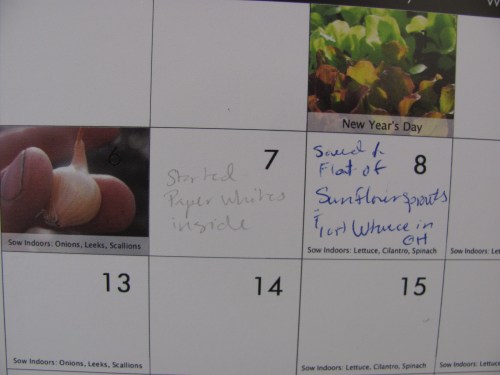 New Year's Day
6
7
8
Started
Paper Whites
inside
Flat of
Sunflower sprouts
in
GH
Sow Indoors: Onions, Leeks, Scallions
Sow Indoors: Lettuce, Cilantro, Spinach
Sow Indoors: Le
13
14
15
Sow Indoors: Onions, Leeks, Scallions
Sow Indoors: Lettuce, Cilantro, Spinach
Sow Indoors: Lettuce